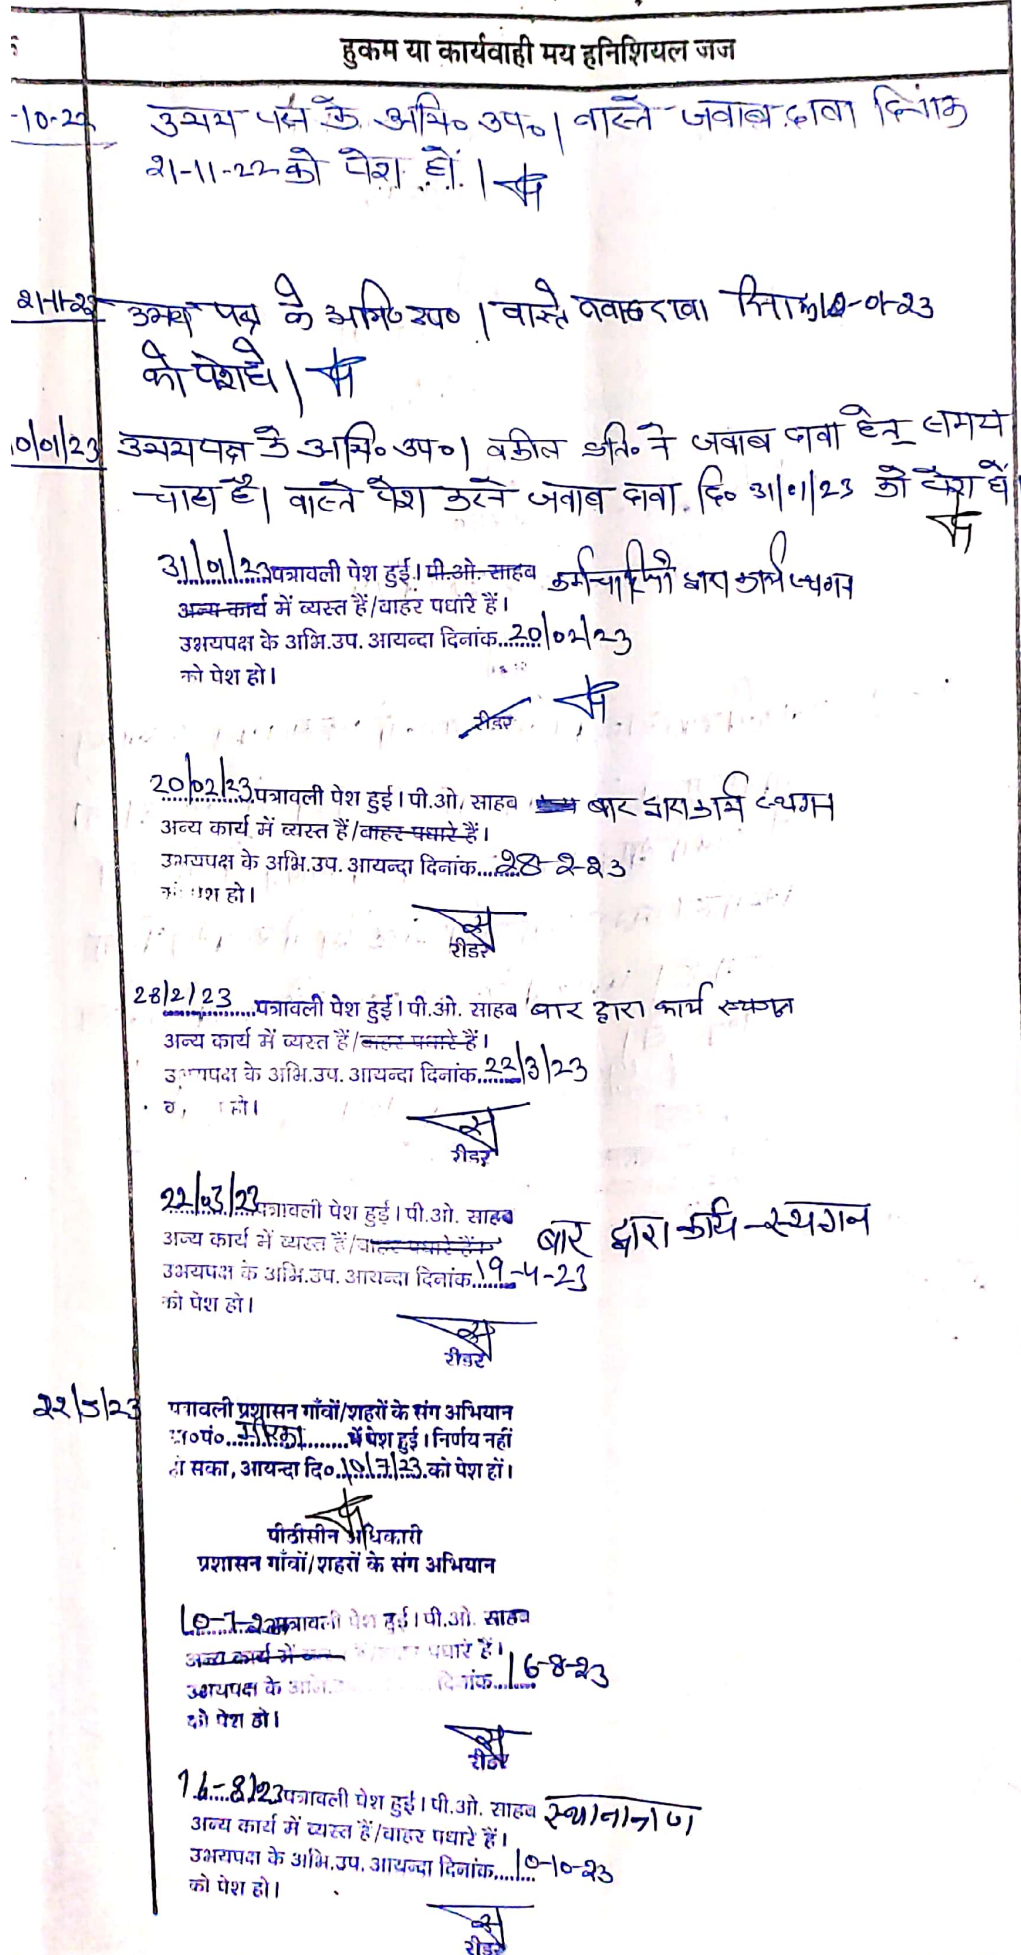 हुकम या कार्यवाही मय हनिशियल जज
-10-22 उभय पक्ष के अभि० उप०। वास्ते जवाब दावा दिनांक
21-11-22 को पेश हों।
21-11-22 उभय पक्ष के अभि० उप०। वास्ते जवाब दावा दिनांक 10-01-23
को पेश हो।
10/01/23 उभयपक्ष के अभि० उप०। वकील प्रति० ने जवाब दावा हेतु समय
चाहा है। वास्ते पेश करने जवाब दावा दि० 31/01/23 को पेश हों
31/01/23 पत्रावली पेश हुई। पी.ओ. साहब कर्मचारियों द्वारा कार्य स्थगन
अन्य कार्य में व्यस्त हैं/बाहर पधारे हैं।
उभयपक्ष के अभि.उप. आयन्दा दिनांक........20/02/23
को पेश हो।
रीडर
20/02/23 पत्रावली पेश हुई। पी.ओ. साहब बार द्वारा कार्य स्थगन
अन्य कार्य में व्यस्त हैं/बाहर पधारे हैं।
उभयपक्ष के अभि.उप. आयन्दा दिनांक........28-2-23
को पेश हो।
रीडर
28/2/23 पत्रावली पेश हुई। पी.ओ. साहब बार द्वारा कार्य स्थगन
अन्य कार्य में व्यस्त हैं/बाहर पधारे हैं।
उभयपक्ष के अभि.उप. आयन्दा दिनांक........22/3/23
हो।
रीडर
22/03/23 पत्रावली पेश हुई। पी.ओ. साहब
अन्य कार्य में व्यस्त हैं/बाहर पधारे हैं। बार द्वारा कार्य स्थगन
उभयपक्ष के अभि.उप. आयन्दा दिनांक........19-4-23
को पेश हो।
रीडर
22/5/23 पत्रावली प्रशासन गाँवों/शहरों के संग अभियान
ग्रा०पं०.............में पेश हुई। निर्णय नहीं
हो सका, आयन्दा दि०.10/7/23.को पेश हों।
पीठासीन अधिकारी
प्रशासन गाँवों/शहरों के संग अभियान
10-7-23 पत्रावली पेश हुई। पी.ओ. साहब
अन्य कार्य में पधारे हैं।
उभयपक्ष के अभि. दिनांक........16-8-23
को पेश हो।
रीडर
16-8/23 पत्रावली पेश हुई। पी.ओ. साहब
अन्य कार्य में व्यस्त हैं/बाहर पधारे हैं।
उभयपक्ष के अभि.उप. आयन्दा दिनांक........10-10-23
को पेश हो।
रीडर